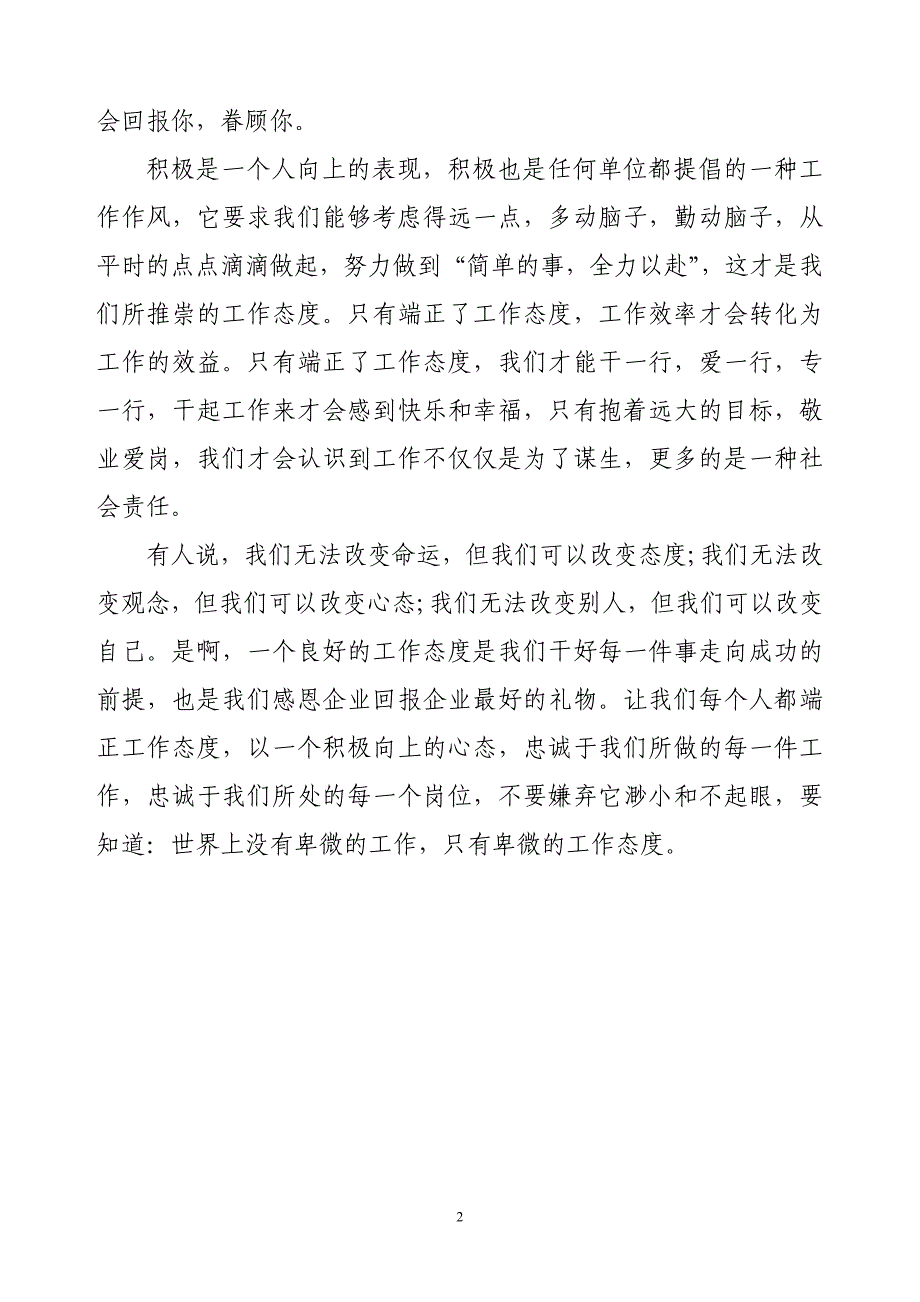 会回报你，眷顾你。
积极是一个人向上的表现，积极也是任何单位都提倡的一种工
作作风，它要求我们能够考虑得远一点，多动脑子，勤动脑子，从
平时的点点滴滴做起，努力做到“简单的事，全力以赴”，这才是我
们所推崇的工作态度。只有端正了工作态度，工作效率才会转化为
工作的效益。只有端正了工作态度，我们才能干一行，爱一行，专
一行，干起工作来才会感到快乐和幸福，只有抱着远大的目标，敬
业爱岗，我们才会认识到工作不仅仅是为了谋生，更多的是一种社
会责任。
有人说，我们无法改变命运，但我们可以改变态度;我们无法改
变观念，但我们可以改变心态;我们无法改变别人，但我们可以改变
自己。是啊，一个良好的工作态度是我们干好每一件事走向成功的
前提，也是我们感恩企业回报企业最好的礼物。让我们每个人都端
正工作态度，以一个积极向上的心态，忠诚于我们所做的每一件工
作，忠诚于我们所处的每一个岗位，不要嫌弃它渺小和不起眼，要
知道：世界上没有卑微的工作，只有卑微的工作态度。
2